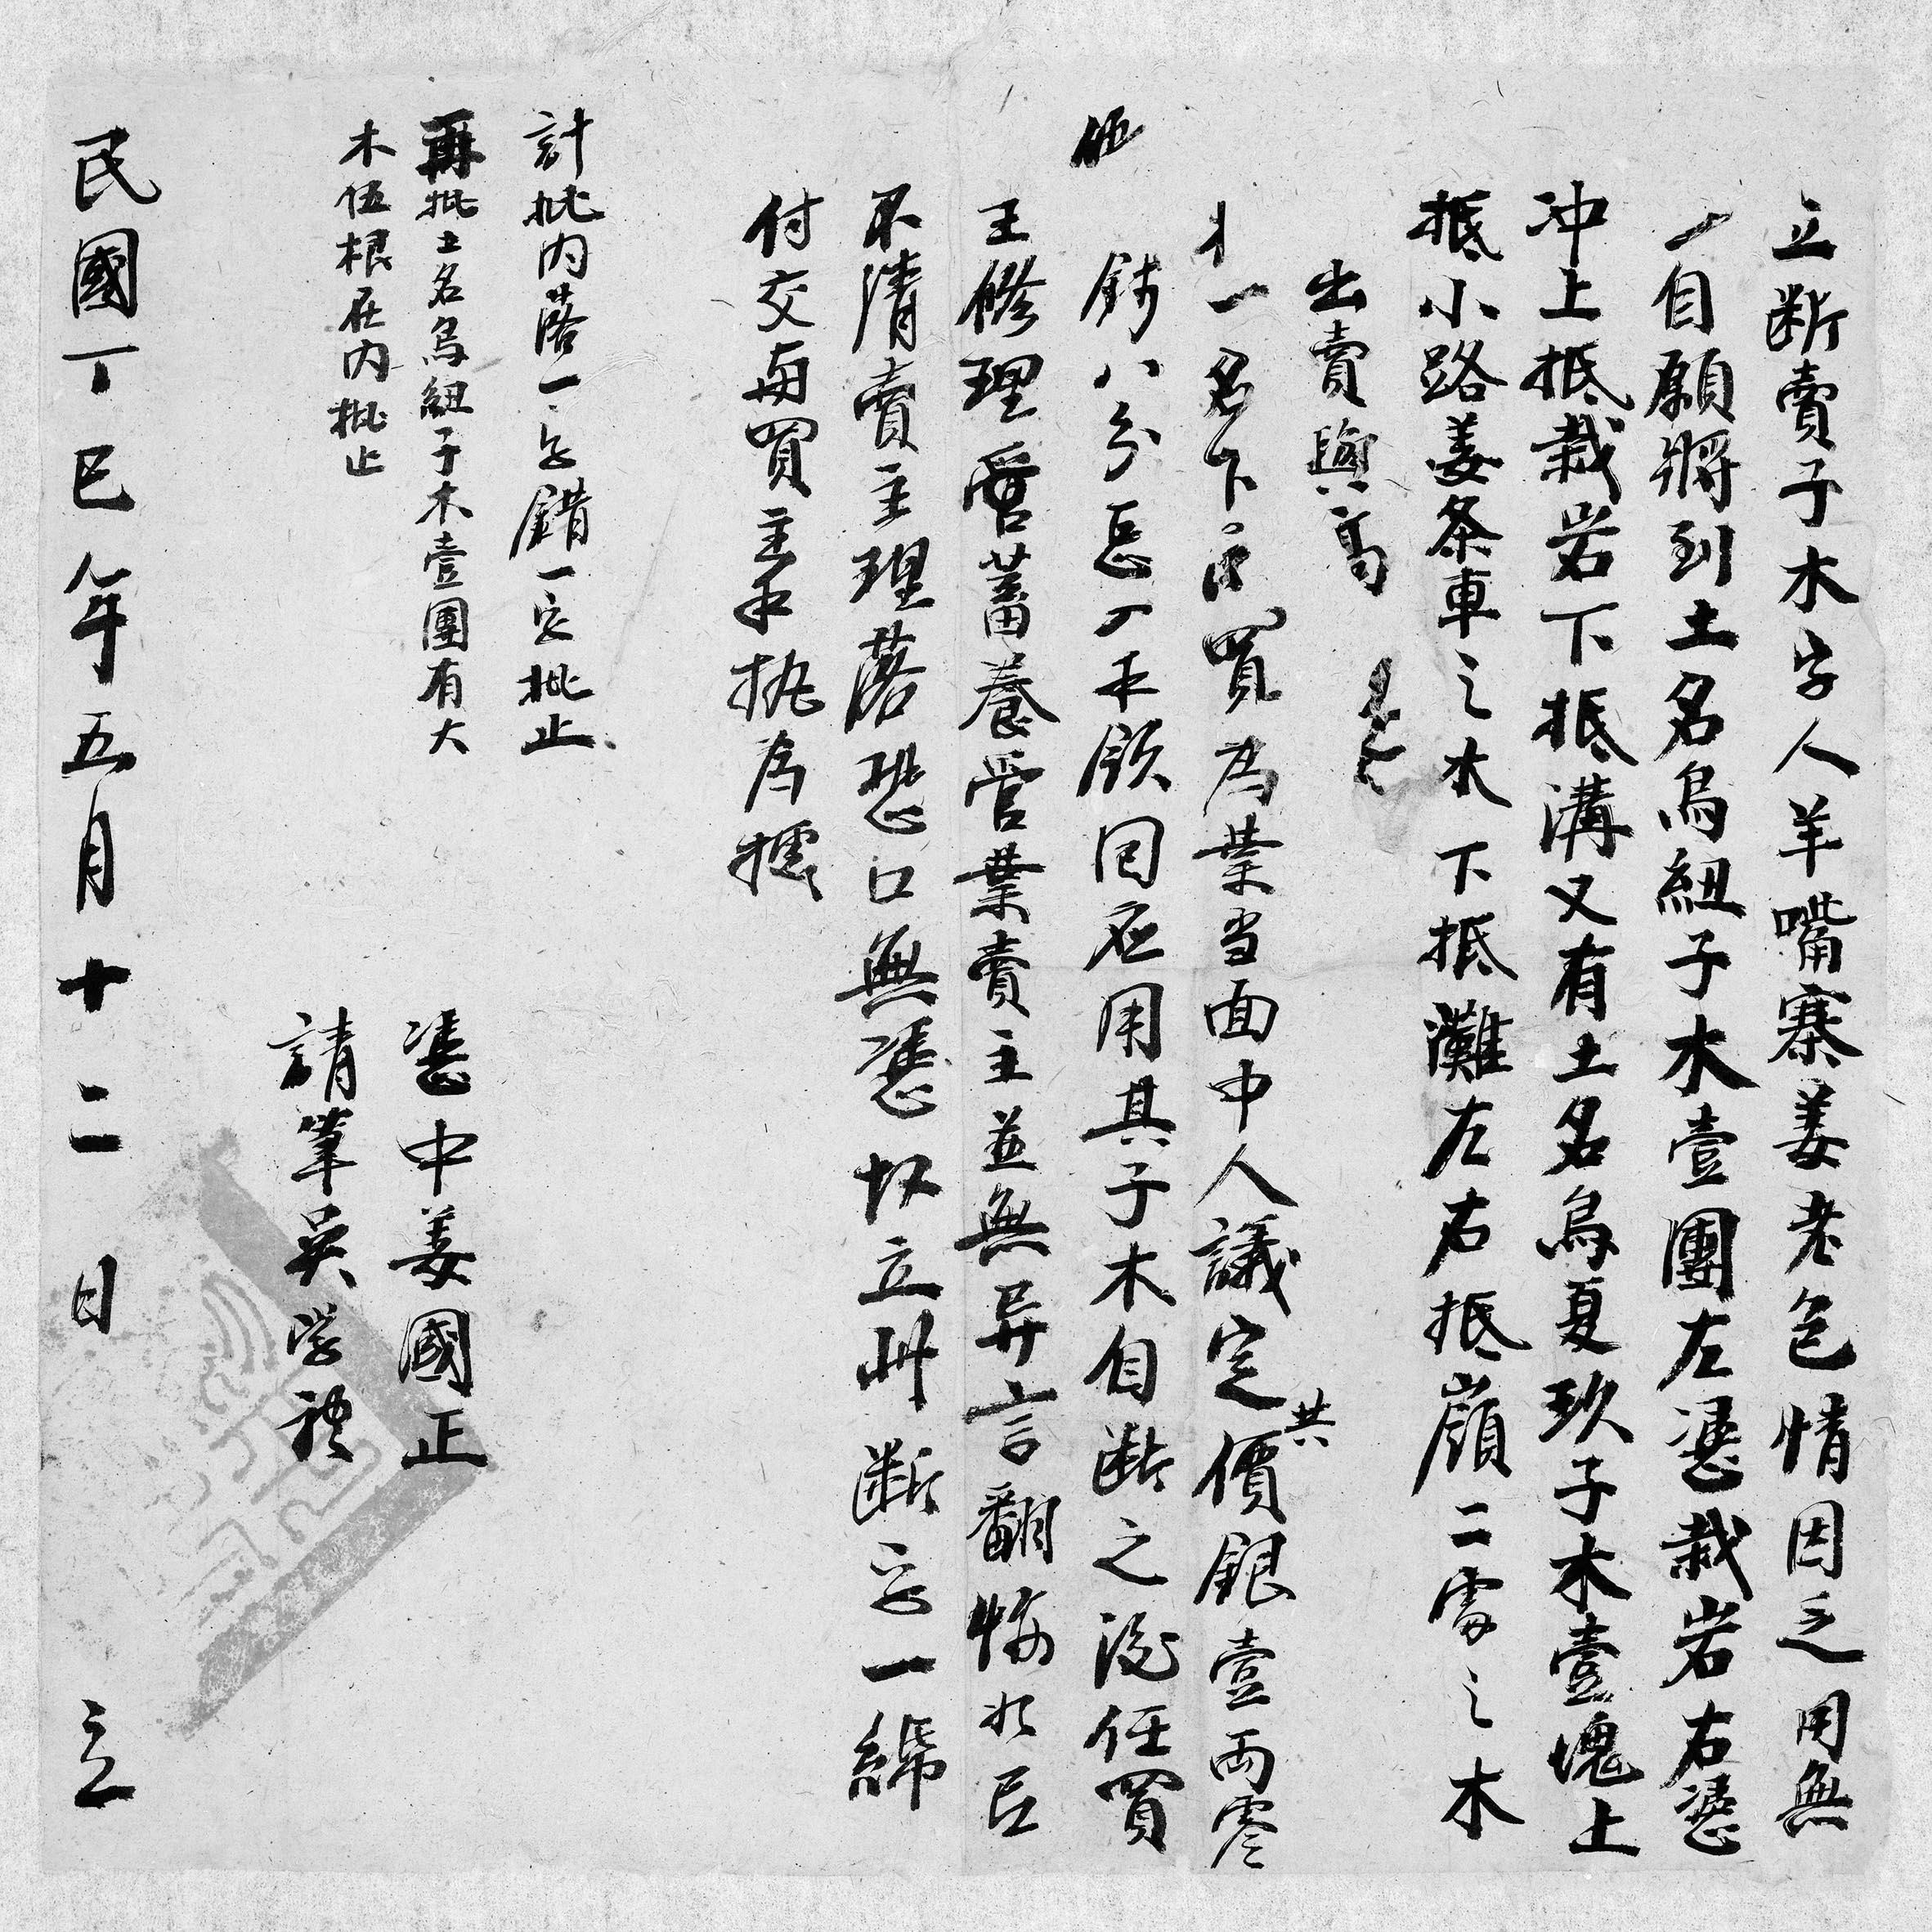 立断賣子木字人羊嘴寨姜老包情因乏用無
一自願將到土名烏紐子木壹團左憑栽岩右憑
冲上抵栽岩下抵溝又有土名烏夏玖子木壹塊上
抵小路姜条車之木下抵灘左右抵嶺二處之木
出賣與高
一名下承買為業当面中人議定共價銀壹両零
伍錢八分忘入手領囘应用其子木自断之後任買
王修理管蓄養管業賣主並無异言翻悔如后
不清賣主理落恐口無憑故立此断字一綿
付交與買主手执為據
計批内落一字錯一字批止
再批土名烏紐子木壹團有大
木伍根在内批止
憑中姜國正
請筆吳学礼
民國丁巳年五月十二日 立